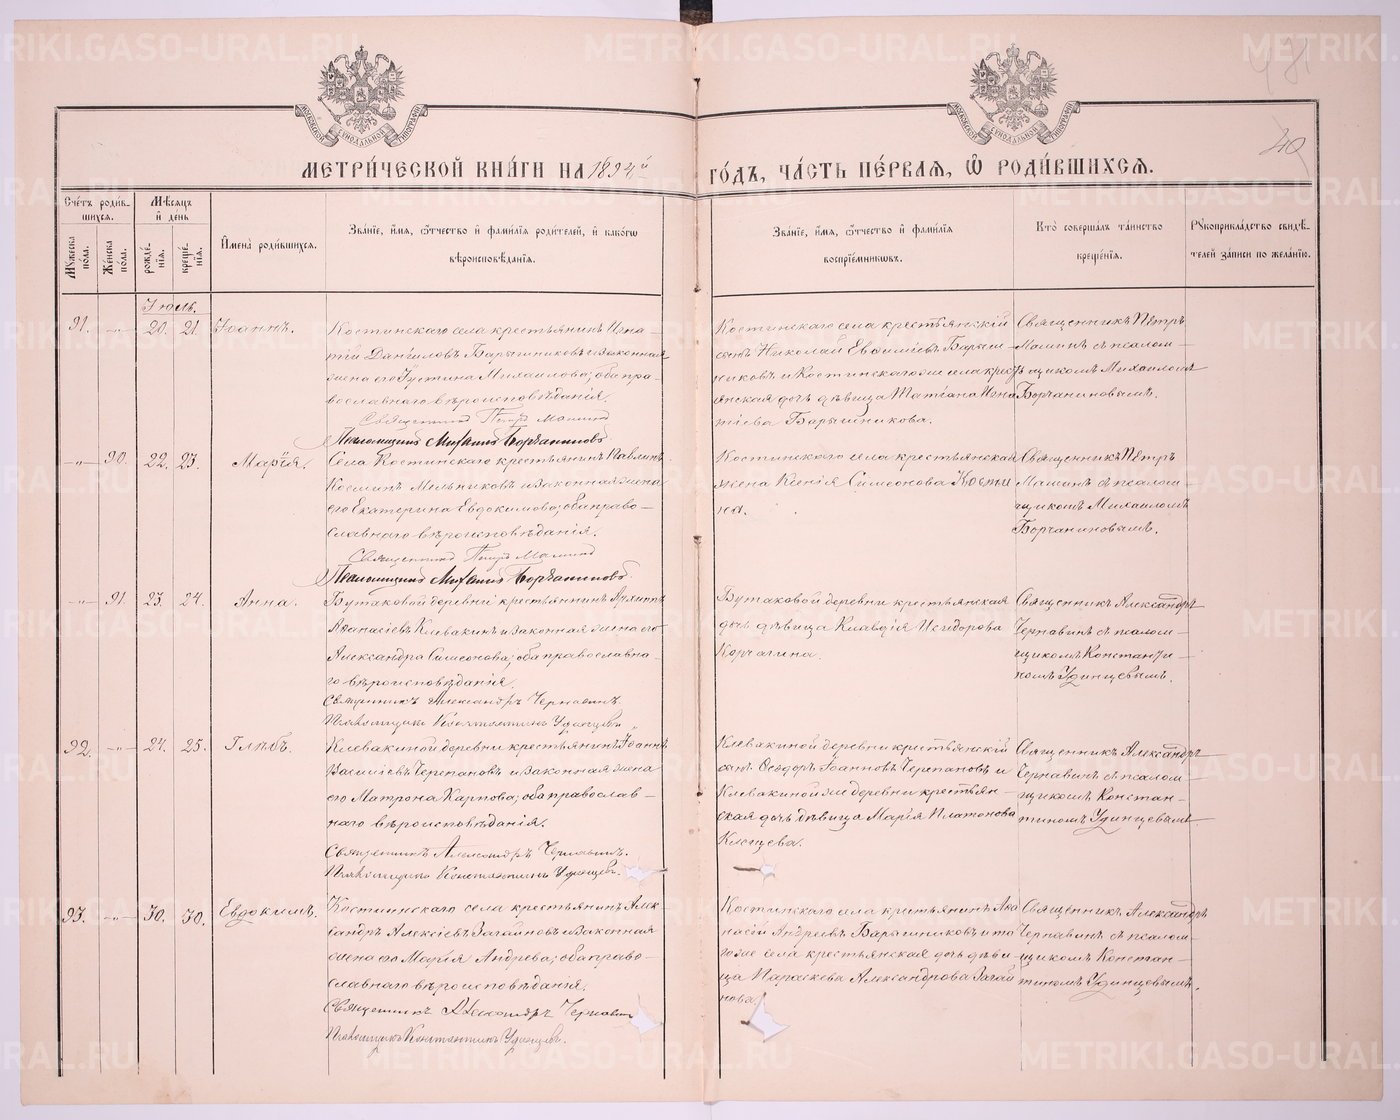 METRIKI.GASO-URAL.RU
МОСКОВСКОЙ СѴНОДАЛЬНОЙ ТИПОГРАФІИ
МОСКОВСКОЙ СѴНОДАЛЬНОЙ ТИПОГРАФІИ
481
49
МЕТРИ́ЧЕСКОЙ КНИ́ГИ НА 1894й ГО́ДЪ, ЧА́СТЬ ПЕ́РВАЯ, Ѡ РОДИ́ВШИХСЯ.
Сче́тъ роди́вшихся.
Мꙋ́жеска по́ла.
Же́нска по́ла.
Мѣ́сяцъ и де́нь
рожде́нїя.
креще́нїя.
И҆мена̀ роди́вшихся.
Зва́нїе, и҆́мя, ѻ҆́тчество и҆ фами́лїя роди́телей, и҆ како́гѡ
вѣроисповѣ́данїя.
Зва́нїе, и҆́мя, ѻ҆́тчество и҆ фами́лїя
воспрїе́мникѡвъ.
Кто̀ соверша́лъ та́инство
креще́нїя.
Рꙋкоприкла́дство свидѣ́телей за́писи по жела́нїю.
Іюль.
91. -„- 20. 21. Іоаннъ.
Костинскаго села крестьянинъ Игна-
тій Даніиловъ Барышниковъ и законная
жена его Іустина Михаилова; оба пра-
вославнаго вѣроисповѣданія.
Священникъ Петръ Маминъ
Псаломщикъ Михаилъ Борчаниновъ
Костинскаго села крестьянскій
сынъ Николай Евѳиміевъ Барыш-
никовъ и Костинскаго же села кресть-
янская дочь дѣвица Татіана Игна-
тіева Барышникова.
Священникъ Петръ
Маминъ съ псалом-
щикомъ Михаиломъ
Борчаниновымъ.
-„- 90. 22. 23. Марія.
Села Костинскаго крестьянинъ Павлинъ
Косминъ Мельниковъ и законная жена
его Екатерина Евдокимова; оба право-
славнаго вѣроисповѣданія.
Священникъ Петръ Маминъ
Псаломщикъ Михаилъ Борчаниновъ.
Костинскаго села крестьянская
жена Ксенія Симеонова Кость
на.
Священникъ Петръ
Маминъ съ псалом-
щикомъ Михаиломъ
Борчаниновымъ.
-„- 91. 23. 24. Анна.
Бутаковой деревни крестьянинъ Архиппъ
Аѳанасіевъ Клевакинъ и законная жена его
Александра Симеонова; оба православна-
го вѣроисповѣданія.
Священникъ Александръ Чернавинъ.
Псаломщикъ Константинъ Удинцевъ
Бутаковой деревни крестьянская
дочь дѣвица Клавдія Исидорова
Корчагина.
Священникъ Александръ
Чернавинъ съ псалом-
щикомъ Константи-
номъ Удинцевымъ.
92. -„- 24. 25. Глѣбъ.
Клевакиной деревни крестьянинъ Іоаннъ
Василіевъ Черепановъ и законная жена
его Матрона Карпова; оба православ-
наго вѣроисповѣданія.
Священникъ Александръ Чернавинъ.
Псаломщикъ Константинъ Удинцевъ.
Клевакиной деревни крестьянскій
сынъ Ѳеодоръ Іоанновъ Черепановъ и
Клевакиной же деревни крестьян-
ская дочь дѣвица Марія Платонова
Клещева.
Священникъ Александръ
Чернавинъ съ псалом-
щикомъ Констан-
тиномъ Удинцевымъ.
93. -„- 30. 30. Евдокимъ.
Костинскаго села крестьянинъ Алек-
сандръ Алексіевъ Загайновъ и законная
жена его Марія Андреева; оба право-
славнаго вѣроисповѣданія.
Священникъ Александръ Чернавинъ
Псаломщикъ Константинъ Удинцевъ.
Костинскаго села крестьянинъ Аѳа
насій Андреевъ Барышниковъ и то
гоже села крестьянская дочь дѣви-
ца Параскева Александрова Загай
нова.
Священникъ Александръ
Чернавинъ съ псалом-
щикомъ Констан-
тиномъ Удинцевымъ.